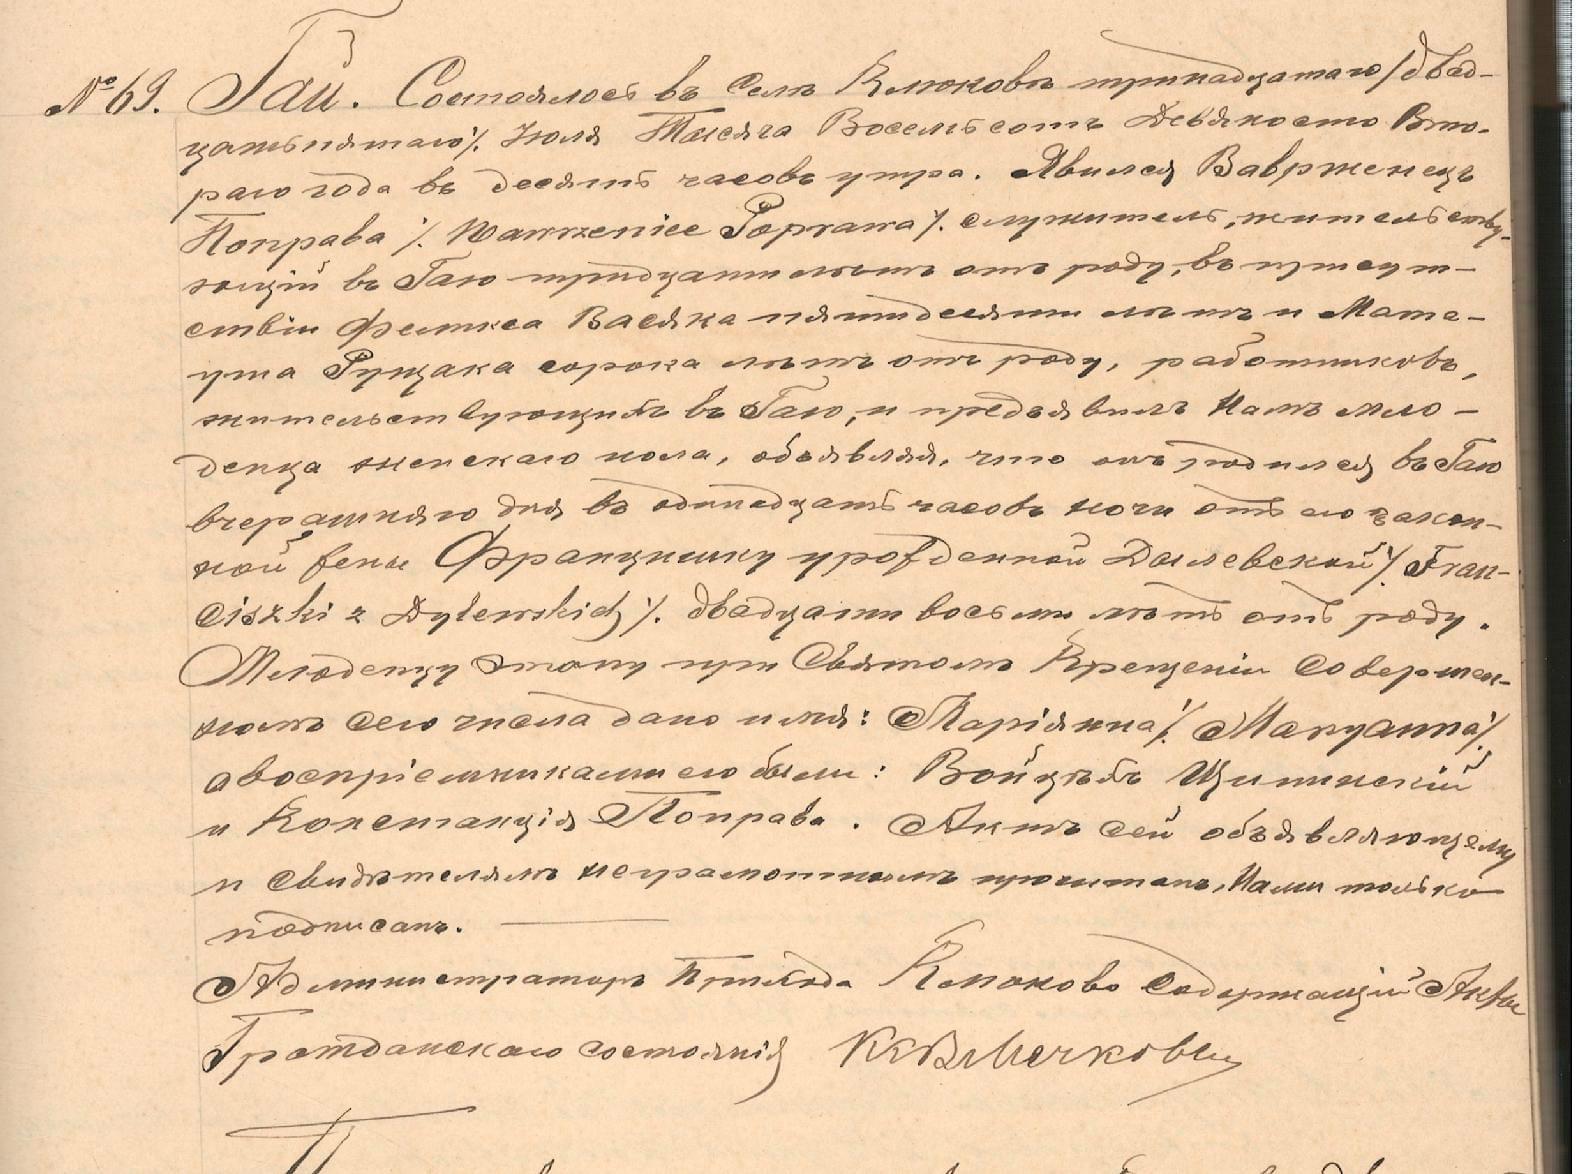 № 69. Гай. Состоялось въ селѣ Клюковѣ тринадцатаго /двад-
цатьпятаго/. Іюля Тысяча Восемьсотъ Девяносто Вто-
раго года въ десять часовъ утра. Явился Ваврженецъ
Поправа /. Wawrzeniec Poprawa /. служитель, жительству-
ющій въ Гаю тридцати лѣтъ отъ роду, въ присут-
ствіи Феликса Васяка пятидесяти лѣтъ и Мате-
уша Рущака сорока лѣтъ отъ роду, работниковъ,
жительствующихъ въ Гаю, и предъявилъ Намъ мло-
денца женскаго пола, объявляя, что онъ родился въ Гаю
вчерашняго дня въ одинадцать часовъ ночи отъ его закон-
ной жены Францишки урожденной Дылевской /. Fran-
ciszki z Dylewskich /. двадцати восьми лѣтъ отъ роду.
Младенцу этому при Святомъ Крещеніи совершен-
номъ сего числа дано имя: Маріянна /. Maryanna /.
а воспріемниками его были: Войцѣхъ Щипинскій
и Констанція Поправа. Актъ сей объявляющему
и свидѣтелямъ неграмотнымъ прочитанъ, Нами только
подписанъ.
Администраторъ Прихода Клюково Содержащій Акты
Гражданскаго состоянія